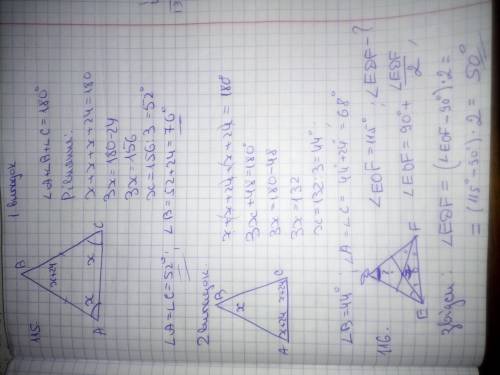 115.
1 випадок
B
x+24
x
x
A
C
∠A+∠B+∠C=180°
Рівняння:
x+x+x+24=180
3x=180-24
3x=156
x=156:3=52°
∠A=∠C=52°; ∠B=52+24=76°
2 випадок.
B
x
x+24
x+24
A
C
x+(x+24)+(x+24)=180°
3x+48=180°
3x=180-48
3x=132
x=132:3=44°
∠B=44° ∠A=∠C=44°+24°=68°
116.
E
F
∠EOF=115°, ∠EDF-?
∠EOF=90°+∠EDF/2,
звідси ∠EDF=(∠EOF-90°)·2=
=(115-90°)·2=50°